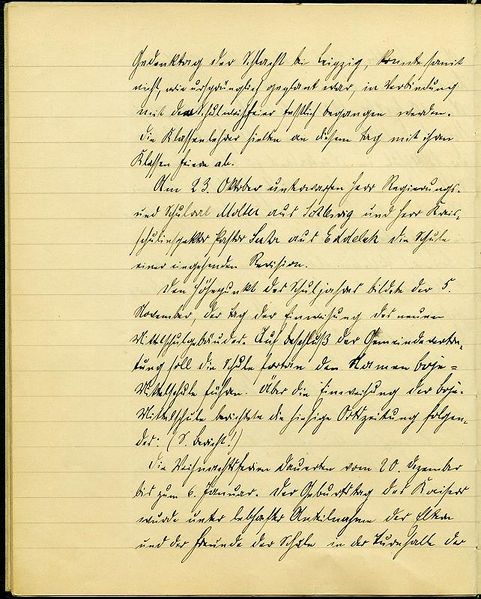 Gedenktag der Schlacht bei Leipzig, konnte somit
nicht, wie ursprünglich geplant war, in Verbindung
mit der Schulweihfeier festlich begangen werden.
Die Klassenlehrer hielten an diesem Tag mit ihren
Klassen Feiern ab.
Am 23. Oktober unterwarfen Herr Regierungs-
und Schulrat Molter aus Schleswig und Herr Kreis-
schulinspektor Pastor aus Eddelak die Schule
einer eingehenden Revision.
Den Höhepunkt des Schuljahres bildete der 5.
November, der Tag der Einweihung des neuen
Mittelschulgebäudes. Auf Beschluß der Gemeindevertre-
tung soll die Schule fortan den Namen Boje=
Mittelschule führen. Über die Einweihung der Boje-
Mittelschule berichtete die hiesige Ortszeitung folgen-
des: (S. Bericht!)
Die Weihnachtsferien dauerten vom 20. Dezember
bis zum 6. Januar. Der Geburtstag des Kaisers
wurde unter lebhafter Anteilnahme der Eltern
und der Freunde der Schule in der Turnhalle der